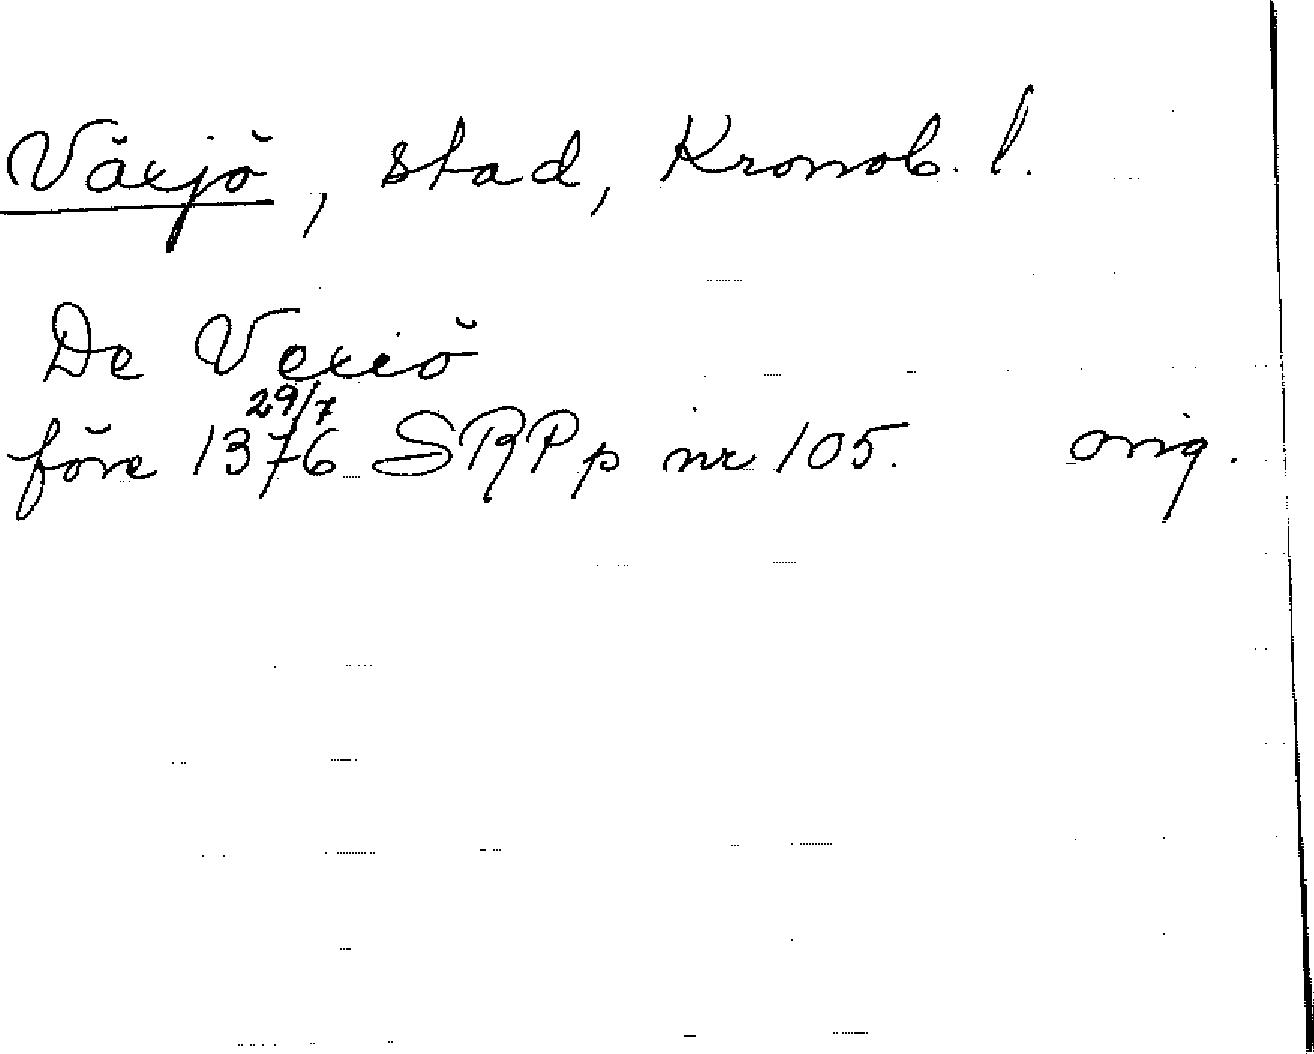 Växjö, stad, Kronob. l.
De Vexiö
29/7
före 1376 SRP p nr 105. orig.